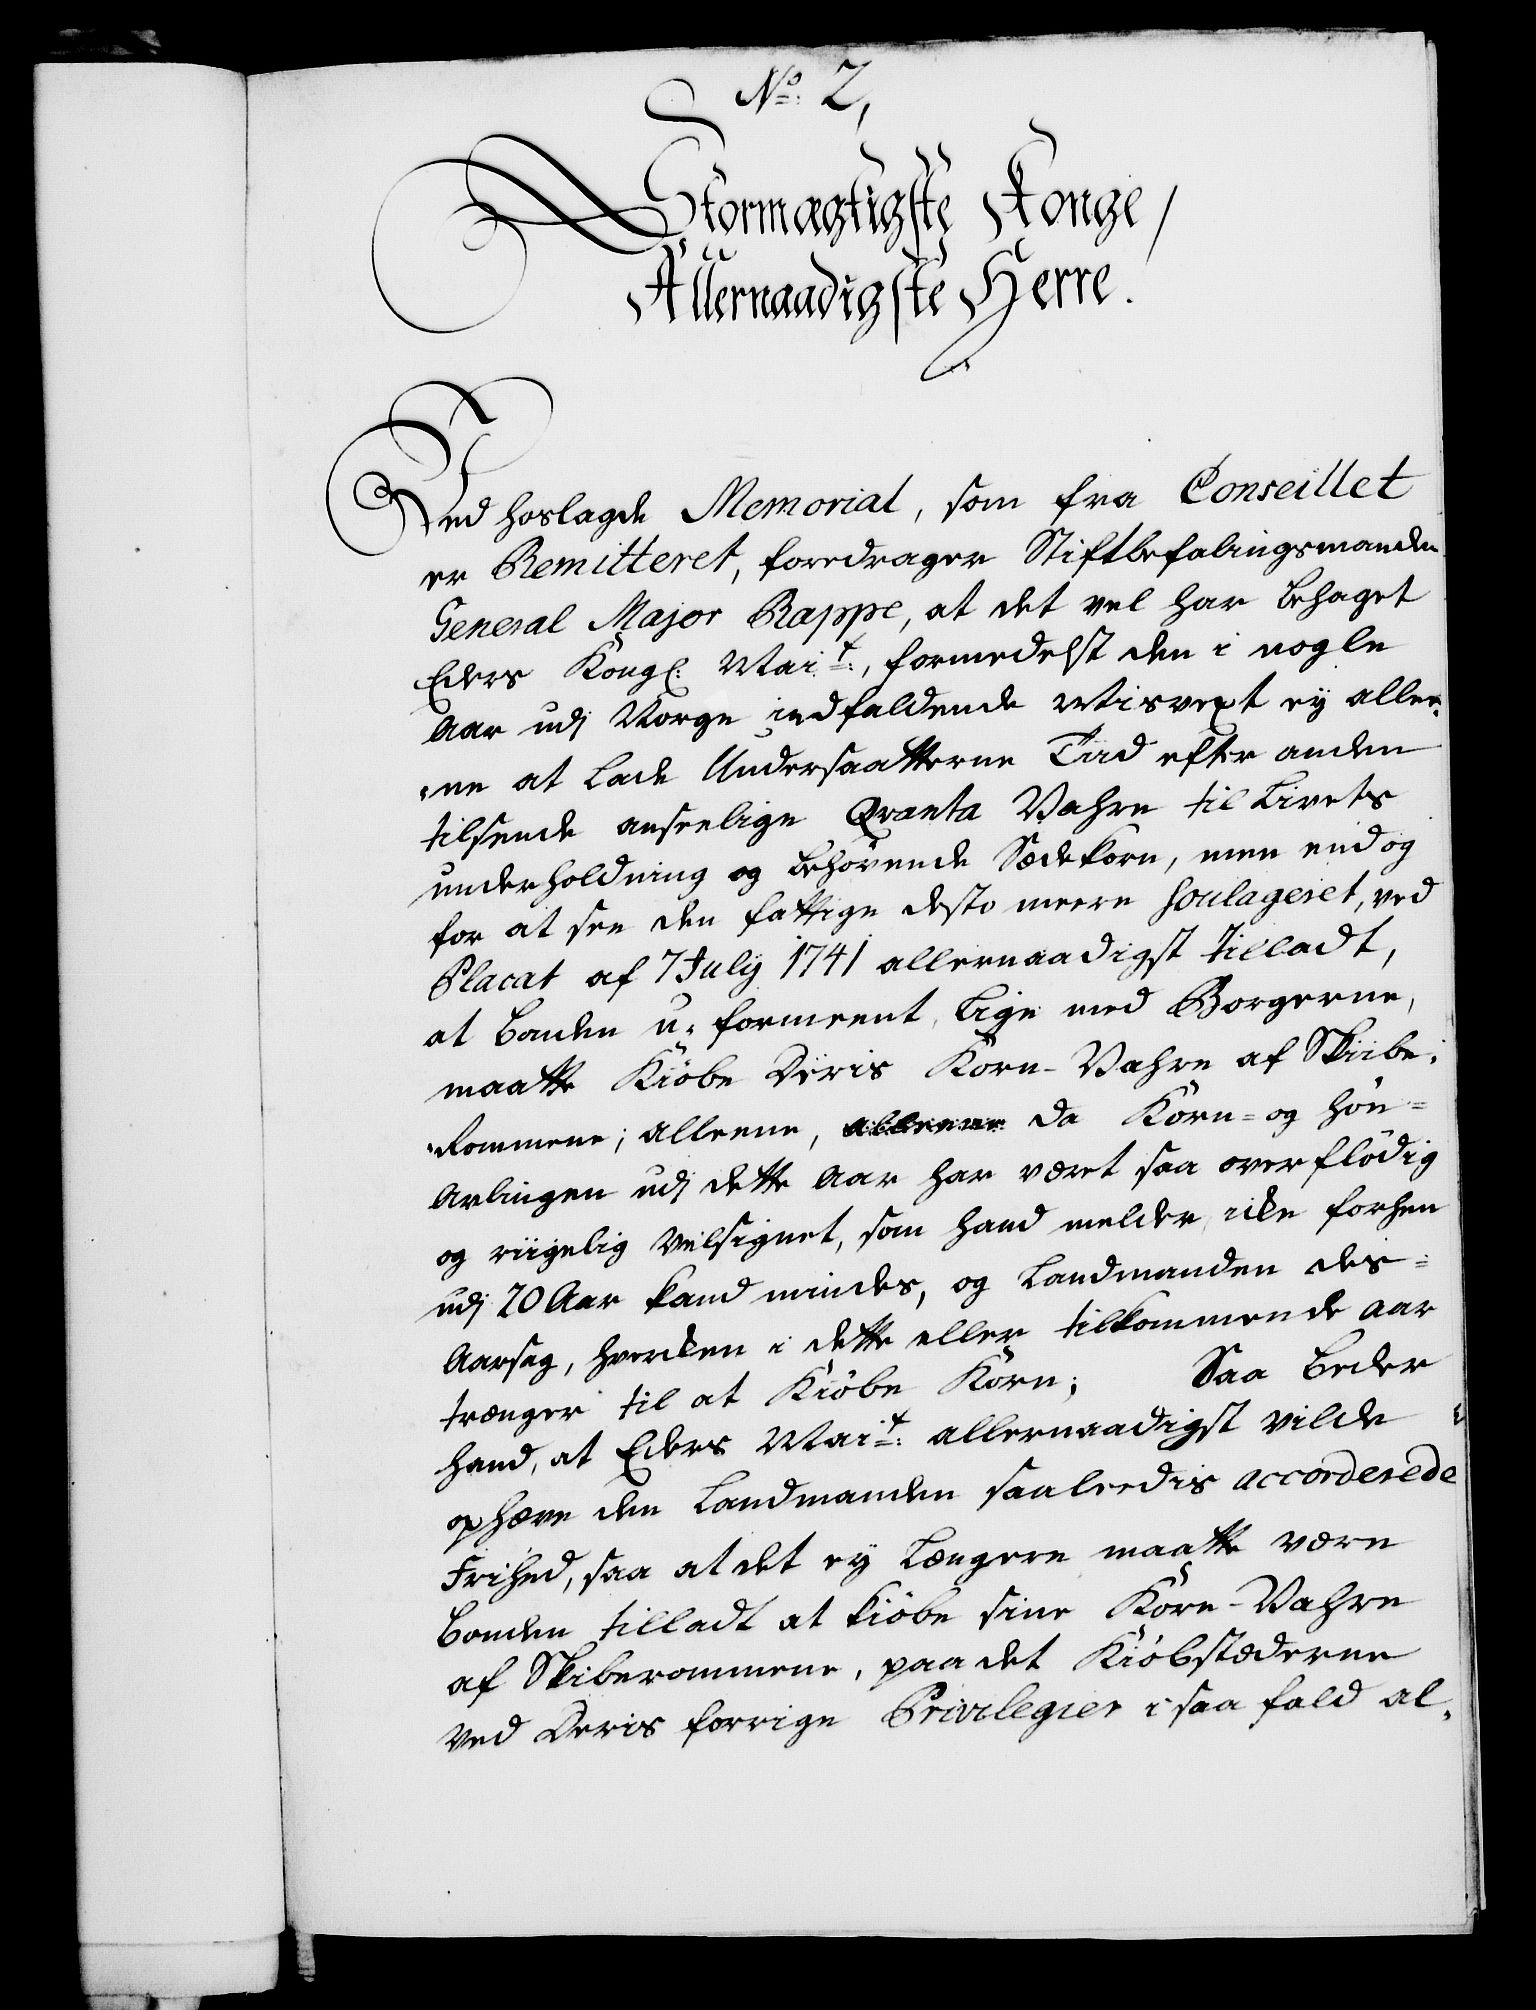 No: 2,
Stormægtigste Konge /
Allernaadigste Herre.
Ved hoslagde Memorial, som fra Conseillet
er Remitteret, foredrager Stiftbefalingsmanden
General Major Rappe, at det vel har behaget
Eders Kongl: Mait:, formedelst den i nogle
Aar udj Norge indfaldende Misvext ey allee„
„ne at lade Undersaatterne Tiid efter anden
tilsende anseelige Qvanta Vahre til Livets
underholdning og behövende Sædekorn, men endog
for at see den fattige desto meere soulageret, ved
Placat af 7 July 1741 allernaadigst tilladt,
at bonden u-formeent, lige med Borgerne,
maatte Kiöbe Deris Korn-Vahre af Skiibe„
„Rommene; alleene, alleene da Korn- og höe-
Avlingen udj dette Aar har været saa overflödig
og riigelig Velsignet, som hand melder, icke forhen
udj 20 Aar kand mindes, og Landmanden des-
Aarsag, hverken i dette eller tilkommende aar
trænger til at Kiöbe Korn; Saa beder
hand, at Eders Mait: allernaadigst vilde
ophæve den Landmanden saaleedis accorderede
Frihed, saa at det ey Længere maatte være
bonden tilladt at kiöbe sine Korn-Vahre
af Skiberommene, paa det Kiöbstæderne
ved Deris forrige Privilegier i saa fald al„